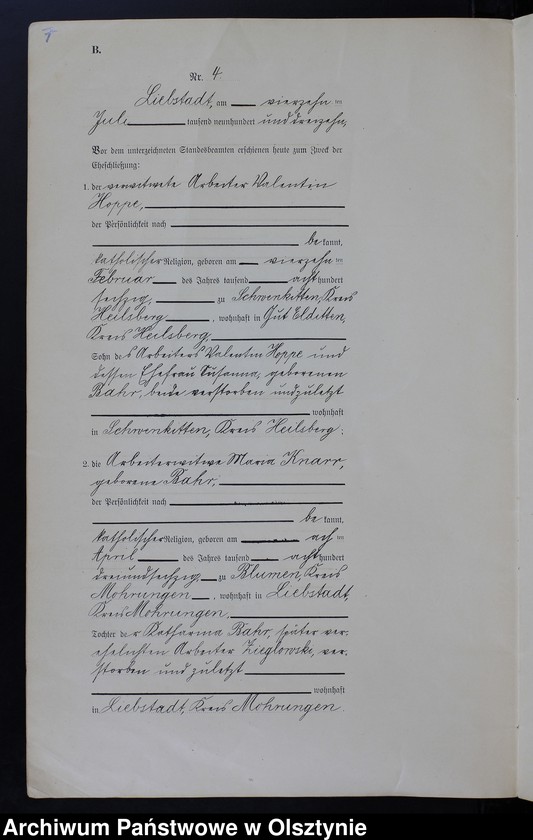 7
B.
Nr. 4.
Liebstadt, am vierzehn ten
Juli tausend neunhundert und dreizehn,
Vor dem unterzeichneten Standesbeamten erschienen heute zum Zweck der
Eheschließung:
1. der verwitwete Arbeiter Valentin
Hoppe,
der Persönlichkeit nach
be kannt,
katholischer Religion, geboren am vierzehn ten
Februar des Jahres tausend acht hundert
sechzig, zu Schwenkitten, Kreis
Heilsberg, wohnhaft in Gut Elditten,
Kreis Heilsberg,
Sohn des Arbeiters Valentin Hoppe und
dessen Ehefrau Susanna, geborenen
Bahr, beide verstorben und zuletzt
wohnhaft
in Schwenkitten, Kreis Heilsberg;
2. die Arbeiterwitwe Maria Knarr,
geborene Bahr,
der Persönlichkeit nach
be kannt,
katholischer Religion, geboren am ach ten
April des Jahres tausend acht hundert
dreiundsechzig zu Blumen, Kreis
Mohrungen, wohnhaft in Liebstadt,
Kreis Mohrungen,
Tochter der Katharina Bahr, später ver-
ehelichten Arbeiter Zieglowski, ver-
storben und zuletzt
wohnhaft
in Liebstadt, Kreis Mohrungen.
Archiwum Państwowe w Olsztynie